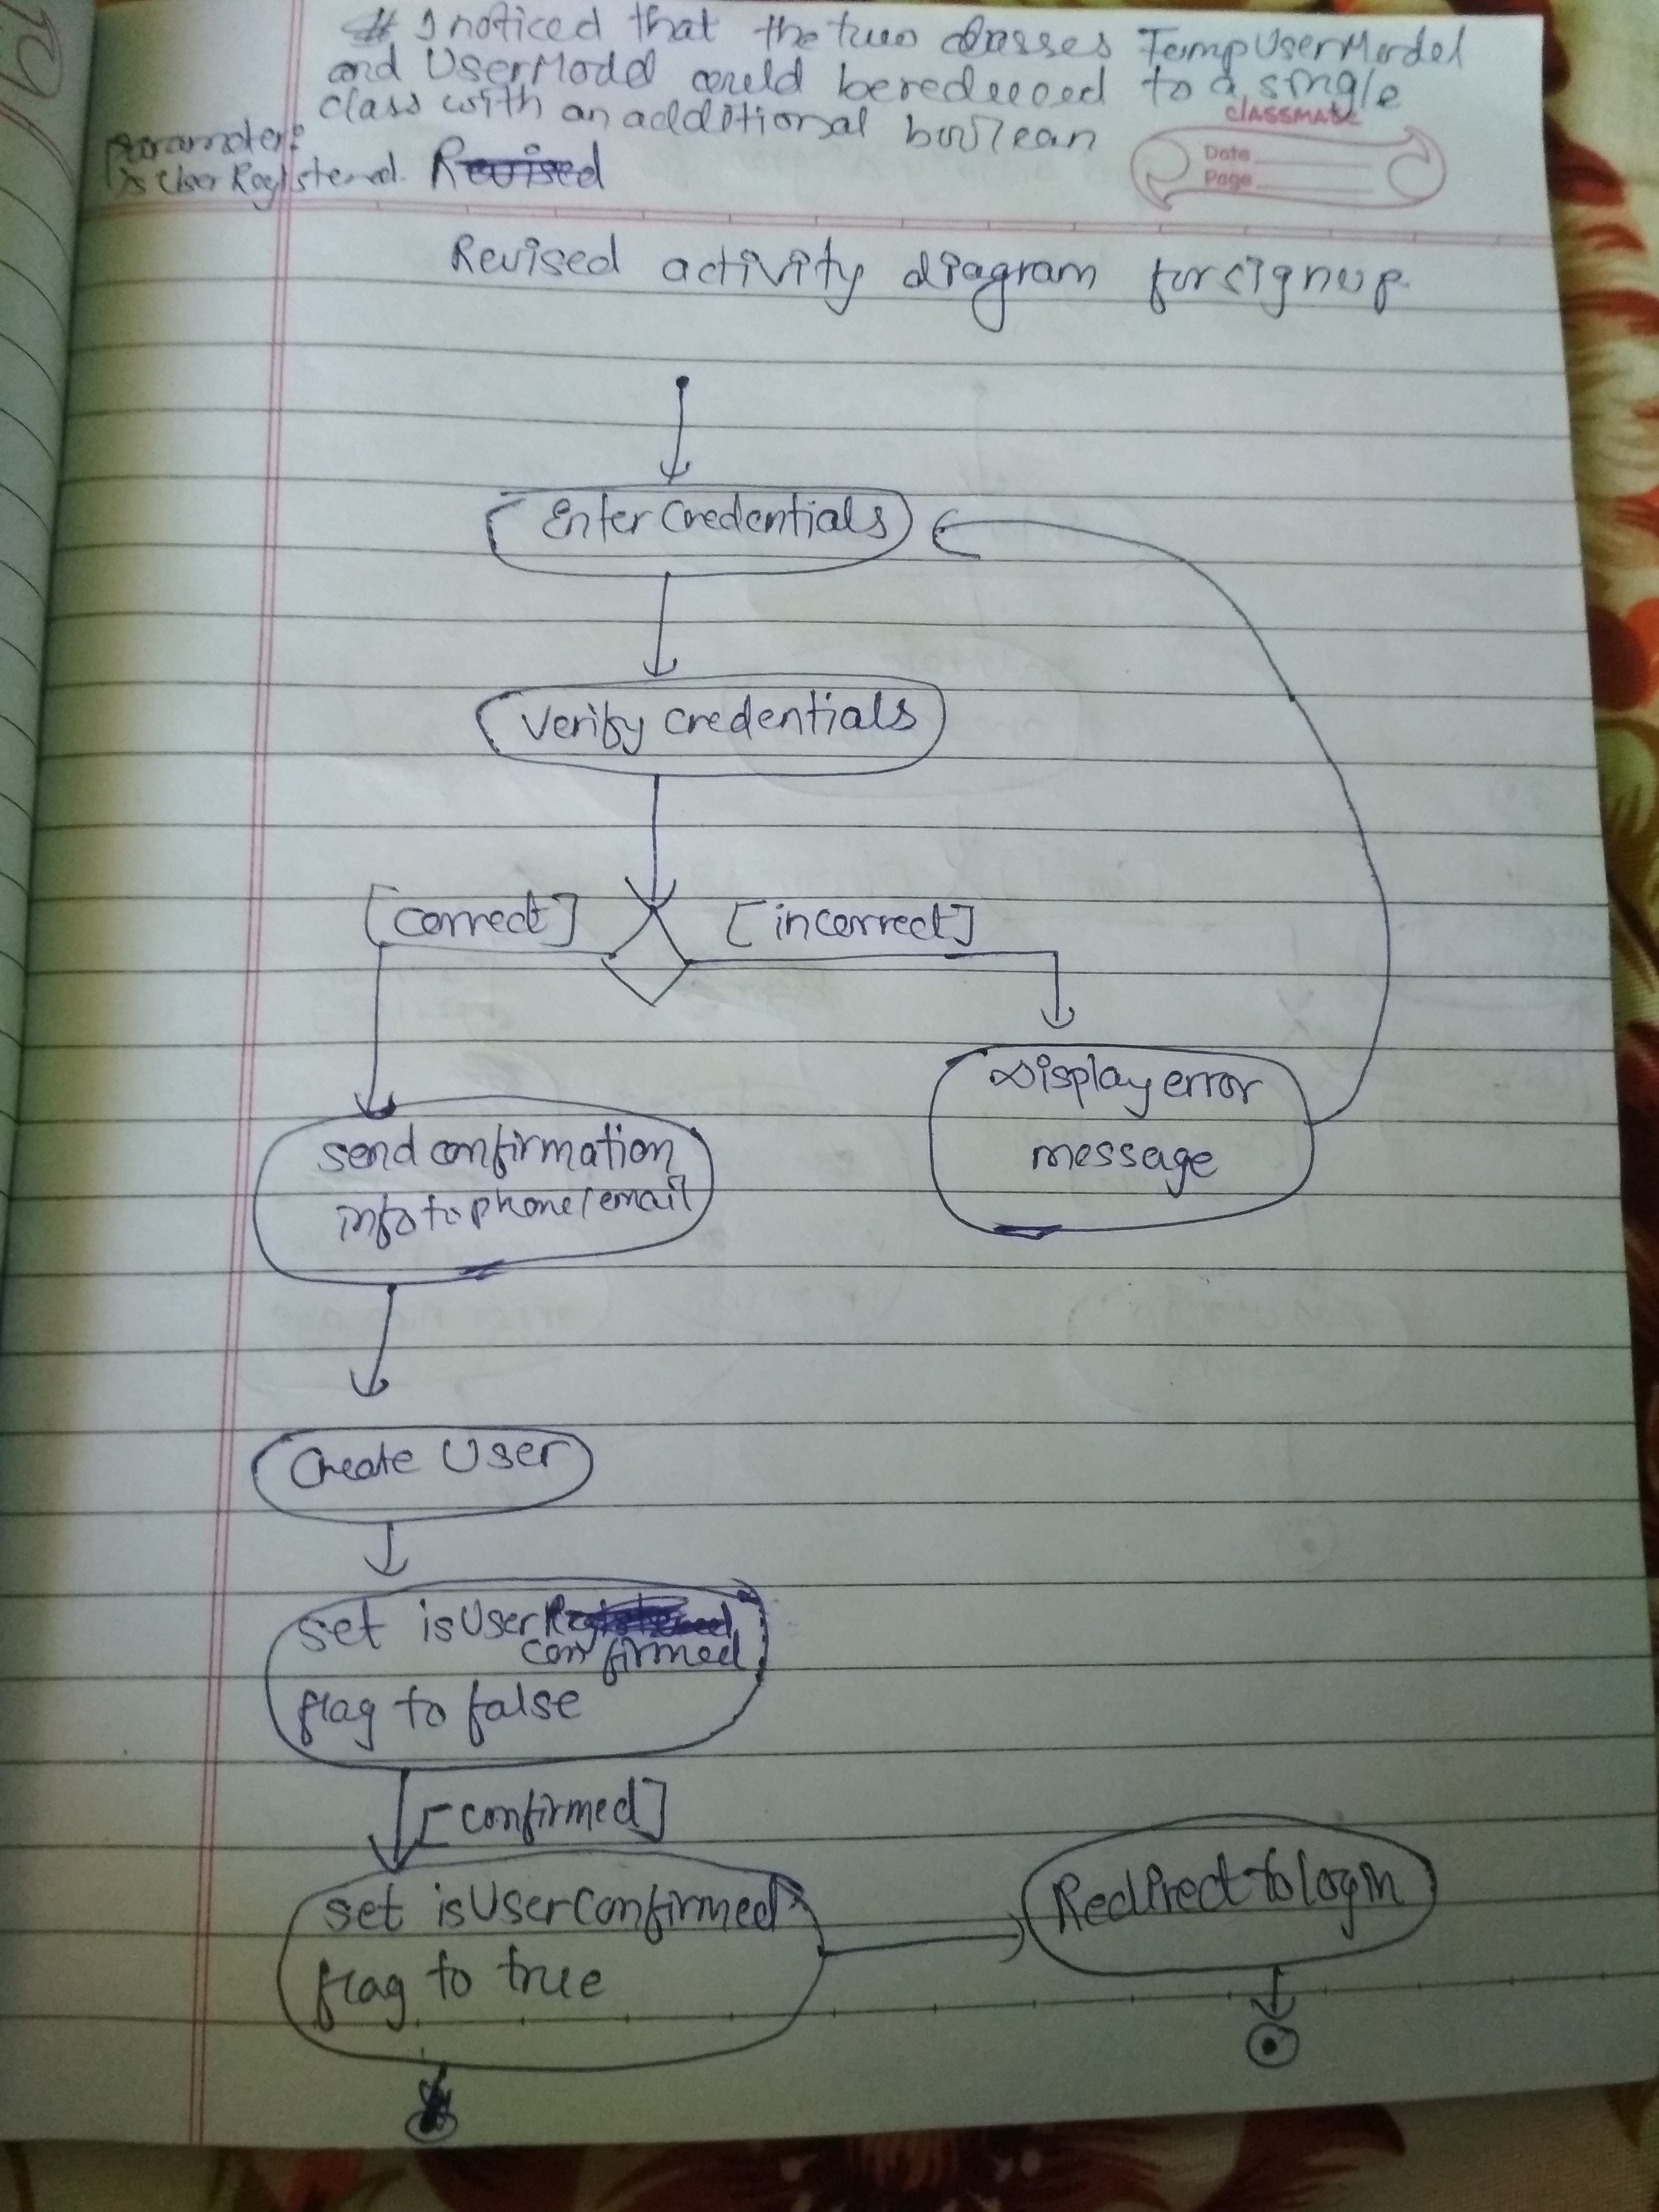 # I noticed that the two classes TempUserModel
and UserModel could be reduced to a single
class with an additional boolean
parameter:
isUserRegistered.
classmate
Date
Page
Revised activity diagram for signup.
Enter Credentials
Verify credentials
[correct] [incorrect]
Display error
message
send confirmation
info to phone/email
Create User
set isUser
confirmed
flag to false
[confirmed]
set isUserConfirmed
flag to true
Redirect to login